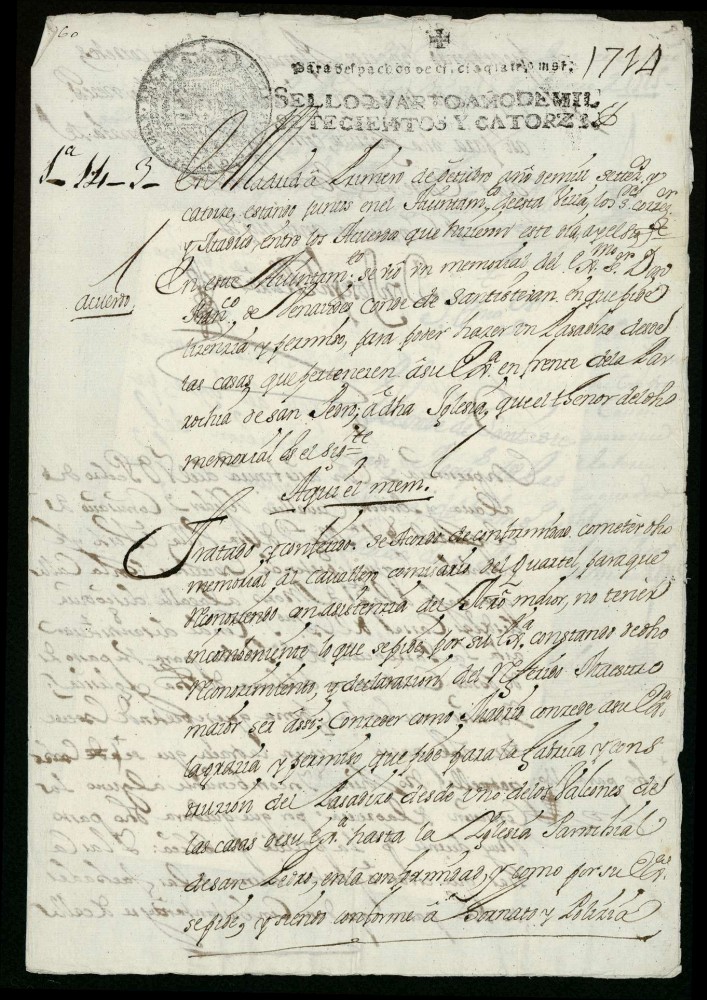 60
Para despachos de oficio quatro mrs.
1714
SELLO QVARTO AÑO DE MIL
SETECIENTOS Y CATORZE
1ª 14 3
En Madrid â Primero de año demill settezos y
catorze, estando juntos enel Ayuntamto deesta Villa, los ss. Correxor
y Madrid, entre los Acuerdos que hizieron este dia, ay el sigte
acuerdo
En este Aiuntamto se vio un memorial del exmo sr Dn
Franco de Benauides Conde de Santisteban en que pide
lizenzia y permiso, para poder hazer vn Pasadizo desde
las casas que pertenezen âsu Exa en frente dela Par
rochia de san Pedro; âdha Yglesia, que el thenor deldho
memorial es el sigte
Aqui el mem.l
Tratado y conferido. se Acordo de conformidad cometer dho
memorial al cauallero comisario del Quartel para que
Reconoziendo con asistenzia del Mro maior, no tener
incombeniente lo que se pide por su Exa constando de dho
Reconozimiento, y declarazion del Referido Maestro
maior ser assi; Conzeder como Madrid conzede asu Exa
la grazia y permiso que pide para la fabrica y cons
truzion del Pasadizo desde vno delos Balcones de
las casas de su Exa hasta la Yglesia Parrochial
de san Pedro, enla conformidad, y como por su Exa
se pide, y siendo conforme â Hornato y Polizia